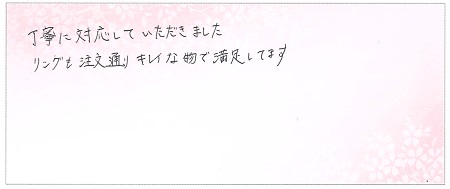 丁寧に対応していただきました
リングも注文通りキレイな物で満足してます